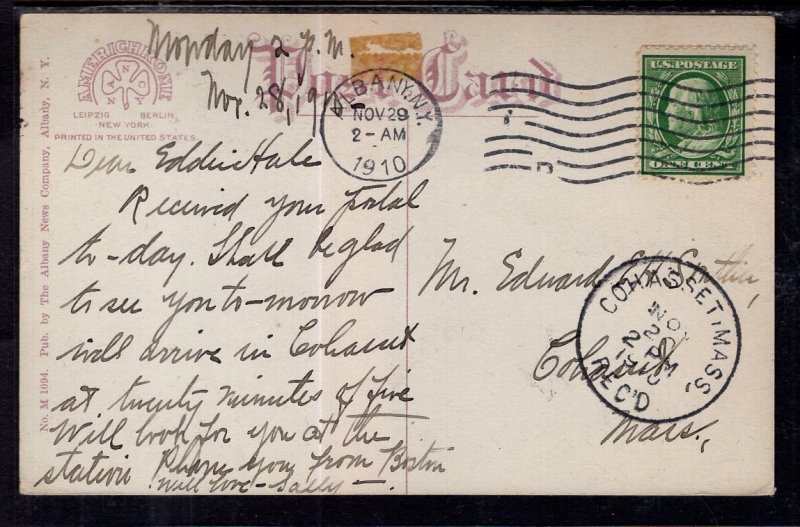 Monday 2 p.m.
Nov. 28, 191
Post Card
AMERICHROME
ANCNY
LEIPZIG BERLIN
NEW YORK
PRINTED IN THE UNITED STATES
No. M 1094. Pub. by The Albany News Company, Albany, N. Y.
ALBANY, N.Y.
NOV 29
2 - AM
1910
U.S. POSTAGE
ONE CENT
Dear Eddie
Received your postal
to-day. Shall be glad
to see you to-morrow
will arrive in Cohasset
at twenty minutes of five
Will look for you at the
station Phone you from Boston
with love - Sally -
Mr. Edward
Cohasset
Mass.,
COHASSET, MASS.
NOV
2 PM
1910
REC'D